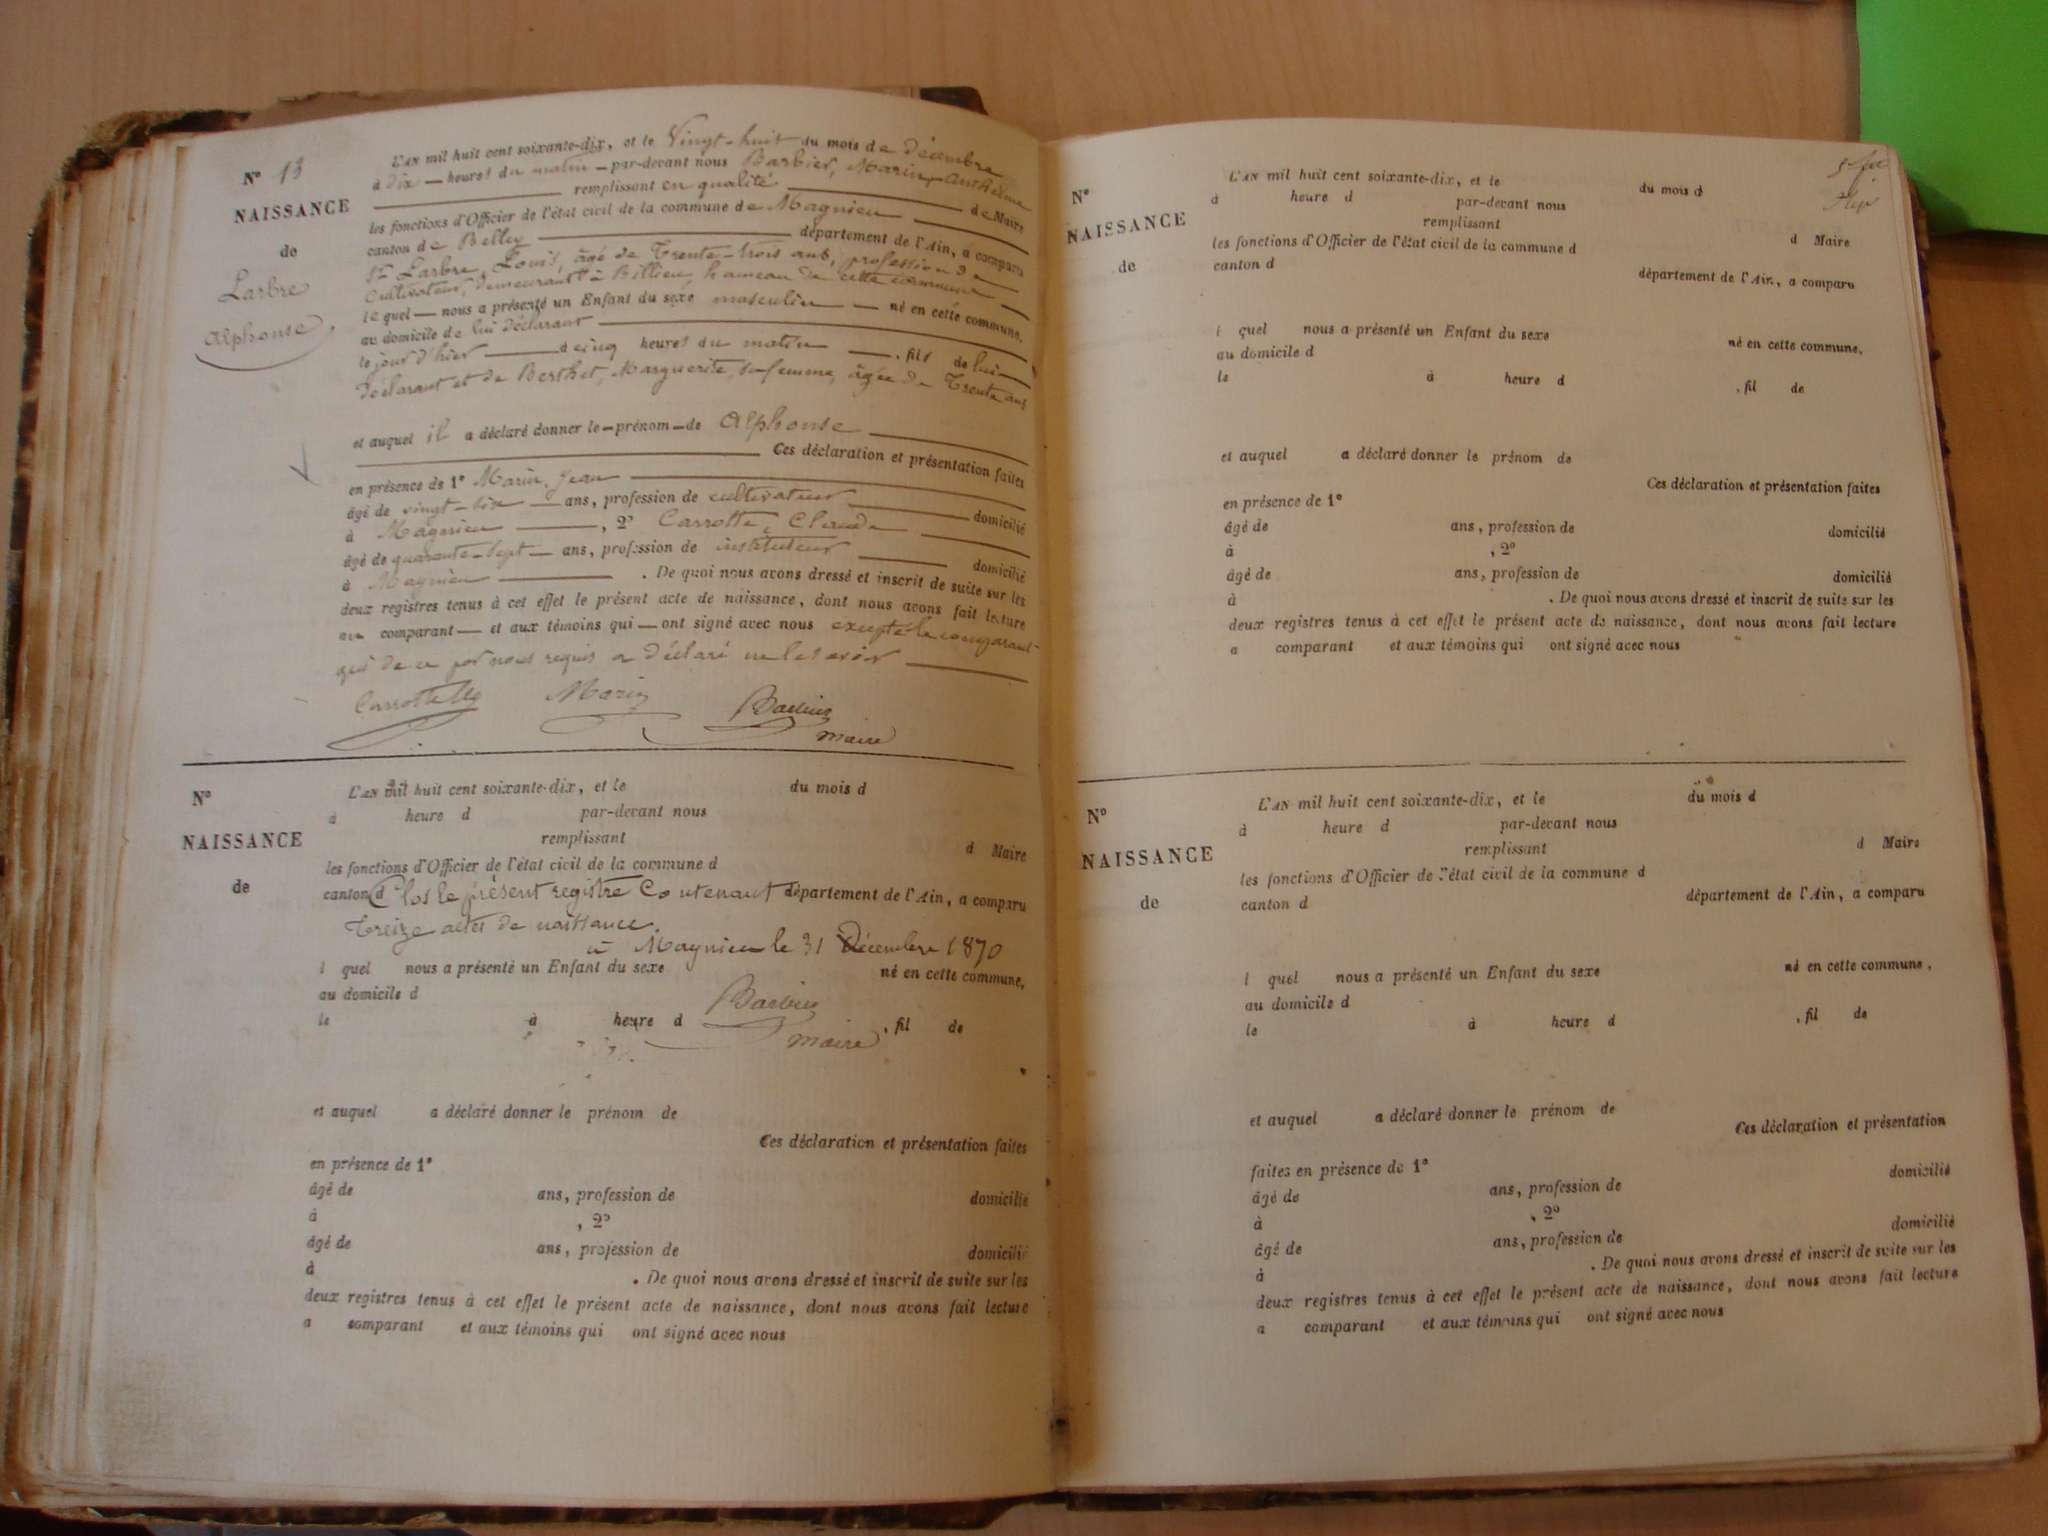 N° 13
NAISSANCE
de
Larbre
Alphonse
L'AN mil huit cent soixante-dix, et le Vingt-huit du mois de décembre
à dix heures du matin par-devant nous Barbier, Marin, Anthelme
remplissant en qualité de Maire
les fonctions d'Officier de l'état civil de la commune de Magnieu
canton de Belley département de l'Ain, a comparu
Sr Larbre, Louis, âgé de Trente-trois ans, profession de
Cultivateur, demeurant à Billieu, hameau de cette commune
lequel nous a présenté un Enfant du sexe masculin né en cette commune,
au domicile de lui déclarant
le jour d'hier à cinq heures du matin, fils de lui
déclarant et de Berthet, Marguerite, sa femme, âgée de Trente ans
et auquel il a déclaré donner le prénom de Alphonse
Ces déclaration et présentation faites
en présence de 1° Marin, Jean
âgé de vingt-six ans, profession de cultivateur domicilié
à Magnieu, 2° Carrotte, Claude
âgé de quarante-sept ans, profession de instituteur domicilié
à Magnieu. De quoi nous avons dressé et inscrit de suite sur les
deux registres tenus à cet effet le présent acte de naissance, dont nous avons fait lecture
au comparant et aux témoins qui ont signé avec nous excepté le comparant
qui de ce par nous requis a déclaré ne le savoir
Marin Barbier
maire
N°
NAISSANCE
de
L'AN mil huit cent soixante-dix, et le du mois d
à heure d par-devant nous
remplissant d Maire
les fonctions d'Officier de l'état civil de la commune d
canton d département de l'Ain, a comparu
Clos le présent registre Contenant
Treize actes de naissance.
à Magnieu le 31 Décembre 1870
l quel nous a présenté un Enfant du sexe né en cette commune,
au domicile d
le à heure d , fil de
Barbier
maire
et auquel a déclaré donner le prénom de
Ces déclaration et présentation faites
en présence de 1°
âgé de ans, profession de domicilié
à , 2°
âgé de ans, profession de domicilié
à . De quoi nous avons dressé et inscrit de suite sur les
deux registres tenus à cet effet le présent acte de naissance, dont nous avons fait lecture
a comparant et aux témoins qui ont signé avec nous
N°
NAISSANCE
de
L'AN mil huit cent soixante-dix, et le du mois d
à heure d par-devant nous
remplissant d Maire
les fonctions d'Officier de l'état civil de la commune d
canton d département de l'Ain, a comparu
l quel nous a présenté un Enfant du sexe né en cette commune,
au domicile d
le à heure d , fil de
et auquel a déclaré donner le prénom de
Ces déclaration et présentation faites
en présence de 1°
âgé de ans, profession de domicilié
à , 2°
âgé de ans, profession de domicilié
à . De quoi nous avons dressé et inscrit de suite sur les
deux registres tenus à cet effet le présent acte de naissance, dont nous avons fait lecture
a comparant et aux témoins qui ont signé avec nous
N°
NAISSANCE
de
L'AN mil huit cent soixante-dix, et le du mois d
à heure d par-devant nous
remplissant d Maire
les fonctions d'Officier de l'état civil de la commune d
canton d département de l'Ain, a comparu
l quel nous a présenté un Enfant du sexe né en cette commune,
au domicile d
le à heure d , fil de
et auquel a déclaré donner le prénom de
Ces déclaration et présentation
faites en présence de 1°
âgé de ans, profession de domicilié
à , 2°
âgé de ans, profession de domicilié
à . De quoi nous avons dressé et inscrit de suite sur les
deux registres tenus à cet effet le présent acte de naissance, dont nous avons fait lecture
a comparant et aux témoins qui ont signé avec nous